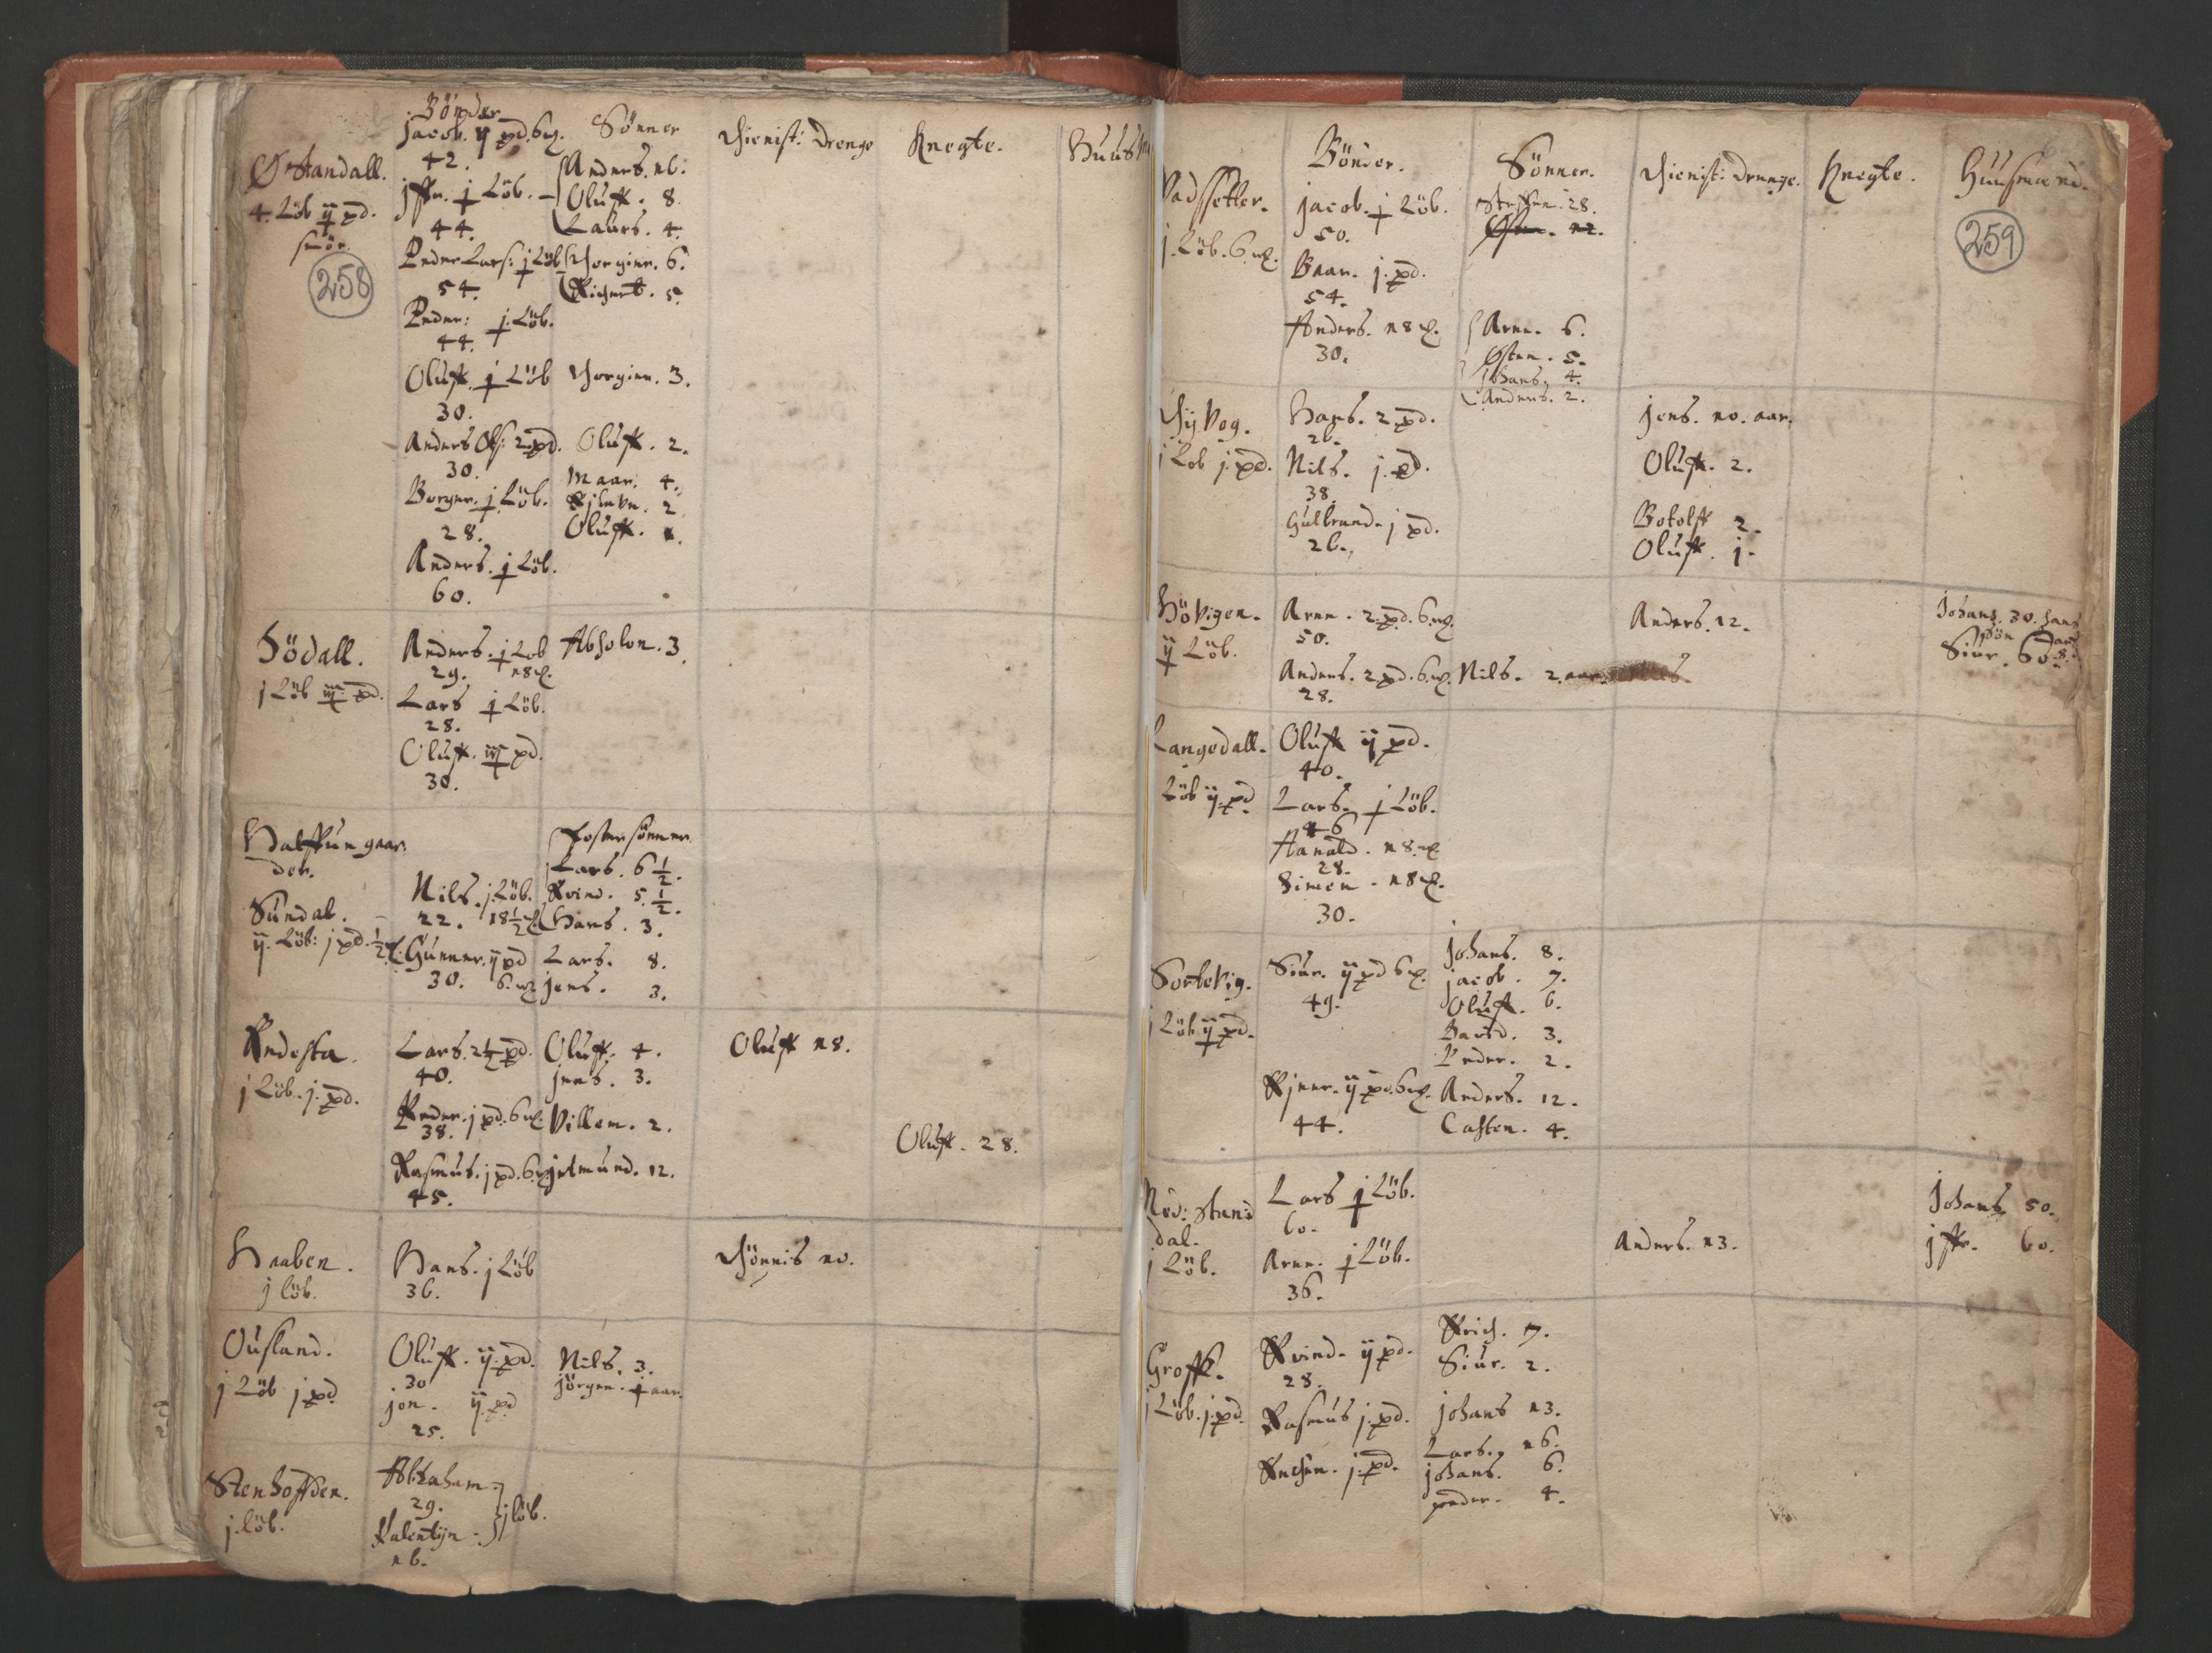 Bönder
Sönner
Thienist: Drenge
Knegte.
Huus
Ø Standall.
4. Löb ij pd.
smör.
258
Jacob. ij pd. 6 mk.
42.
Iffr. j Löb.
44.
Anders. 16.
Oluff. 8.
Laurs. 4.
Peder Lars: j Löb
54.
Thorgier. 6.
Richert. 5.
Peder: j. Löb.
44.
Oluff. j Löb
30.
Thorgier. 3.
Anders Ols: 2 pd.
30.
Oluff. 2.
Borger. j Löb.
28.
Maar. 4.
2
Oluff. 1.
Anders. j Löb.
60.
Södall.
j Löb iij pd.
Anders. j Lob
29. 18 mk.
Absolon. 3.
Lars j Löb.
28.
Oluff. iij pd.
30.
Halffuegaar
der.
Sundal.
ij. Löb: j pd. ½ mk.
Foster sönner
Nils. j. Löb.
22. 18½ mk.
Lars. 6½.
Evind. 5½.
Hans. 3.
Gunner. ij pd
30. 6. mk.
Lars. 8.
Jens. 3.
Endesta.
j Löb. j. pd.
Lars. 2½ pd.
40.
Oluff. 4.
Jens. 3.
Oluff 18.
Peder. j pd. 6 mk.
38.
Villem. 2.
Oluff. 28.
Rasmus. j pd. 6 mk.
45.
Jelmund. 12.
Haaben.
j löb.
Hans. j Löb
36.
Thönnis 10.
Ousland.
j Löb j pd
Oluff. ij. pd.
30
Nils. 3.
Jörgen. j aar.
Jon. ij pd
25.
Stenhoffden.
j. löb.
Abraham.
29.
j löb.
Valentijn.
16.
Bönder.
Sönner.
Thienist: Drenge.
Knegte.
Huusmænd.
259
Vadsetter.
j. Löb. 6. mk.
Jacob. j Löb.
50.
Steffen. 28.
Østen. 12.
Baar. j. pd.
54.
Anders. 18 mk.
30.
Arne. 6.
Østen. 5.
Johans. 4.
Anders. 2.
Thyvog.
j Lob j. pd.
Hans. 2 pd.
26.
Jens. 10. aar.
Nils. j. pd.
38.
Oluff. 2.
Gulbrand. j pd.
26.
Botolff 2.
Oluff. j.
Hövigen.
ij Löb.
Arne. 2. pd. 6. mk.
50.
Anders. 12.
Johans. 30. hans
Sön
Siur. 60.
Anders. 2 pd. 6. mk.
28.
Nils. 2. aar.
Langedall.
Löb ij. pd
Oluff ij pd.
40.
Lars. j Löb.
46
Harald. 18. mk.
28.
Simen. 18 mk.
30.
Sortevig.
j Löb ij pd.
Siur. ij pd 6 mk.
49.
Johans. 8.
Jacob. 7.
Oluff. 6.
Baard. 3.
Peder. 2.
Ejner. ij pd. 6 mk.
44.
Anders. 12.
Casten. 4.
Ned: Stand
dal.
j Löb.
Lars j Löb.
60.
Johans 50.
Arne. j Löb.
36.
Anders. 13.
Iffr. 60.
Groff.
j Löb. j. pd.
Evind. ij pd.
28.
Erich. 7.
Siur. 2.
Rasmus j. pd.
Johans 13.
Lars. 16.
j. pd.
Johans. 6.
peder. 4.